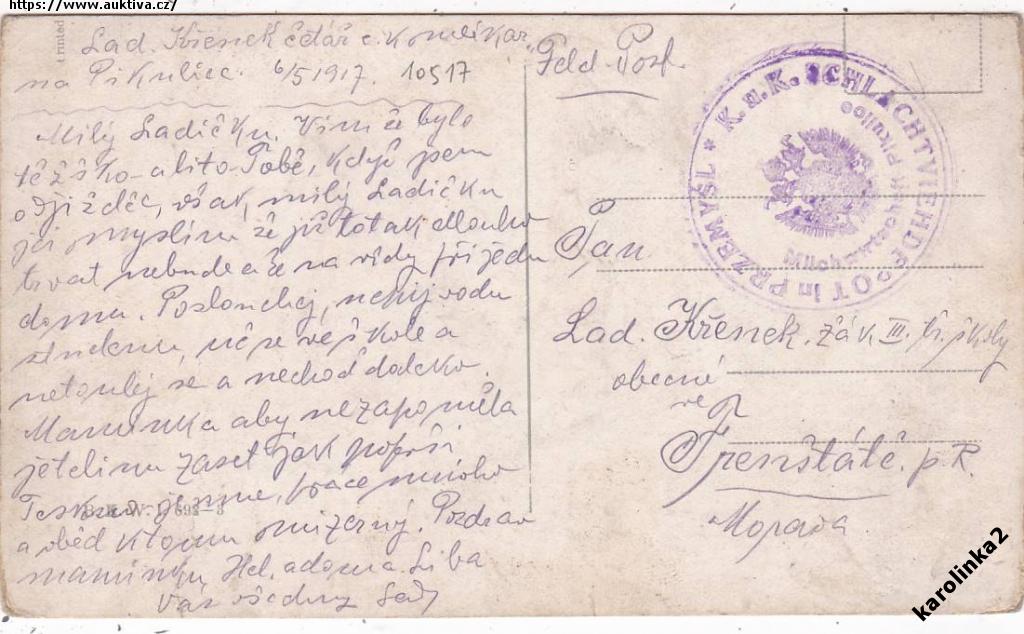 https://www.auktiva.cz/
Lad. Křenek četář c. k.
na Pikulice. 6/5 1917. 10517
Milý Ladíčku. Vím že bylo
těžko a líto Tobě, když jsem
odjížděl, však, milý Ladíčku
já myslím že již to tak dlouho
trvat nebude a že na vždy přijedu
domu. Poslouchej, nepij vodu
studenu, uč se ve škole a
netoulej se a nechoď daleko.
Maminka aby nezapoměla
jetelinu zaset jak poprší
Teskno je mne, práce mnoho
B.K.W.I. 698-3
a oběd k tomu mizerný. Pozdrav
maminku, Hel. a doma. Liba
Vás všechny Lad
Feld-Post
K.u.K. SCHLACHTVIEHDEPOT in PRZEMYSL *
Milchwirtschaft Pikulice
Pan
Lad. Křenek. žák III. tř. školy
obecné
ve
Frenštátě. p. R.
Morava
karolinka2